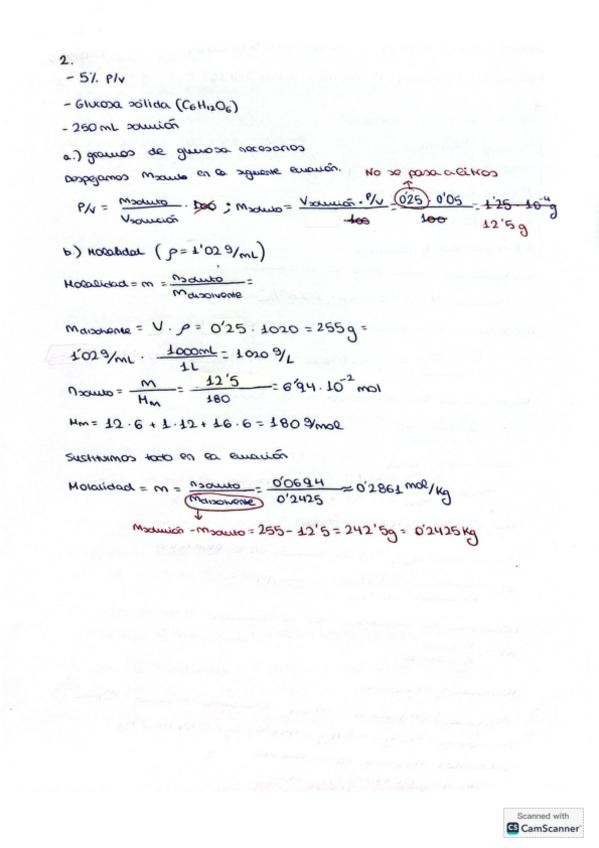 2.
- 5% P/V
- Glucosa sólida (C6H12O6)
- 250 mL solución
a.) gramos de glucosa necesarios
Despejamos msoluto en la siguiente ecuación. No se pasa a litros
P/V = msoluto / Vsolución · 100 ; msoluto = Vsolución · P/V / 100 = 0'25 · 0'05 / 100 = 1'25 · 10^-4 g
12'5 g
b) Molalidad (ρ = 1'02 g/mL)
Molalidad = m = nsoluto / mdisolvente =
mdisolvente = V · ρ = 0'25 · 1020 = 255g =
1'02 g/mL · 1000mL / 1L = 1020 g/L
nsoluto = m / Mm = 12'5 / 180 = 6'94 · 10^-2 mol
Mm = 12 · 6 + 1 · 12 + 16 · 6 = 180 g/mol
Sustituimos todo en la ecuación
Molalidad = m = nsoluto / mdisolvente = 0'0694 / 0'2425 ≈ 0'2861 mol/kg
msolución - msoluto = 255 - 12'5 = 242'5g = 0'2425 kg
Scanned with
CS CamScanner